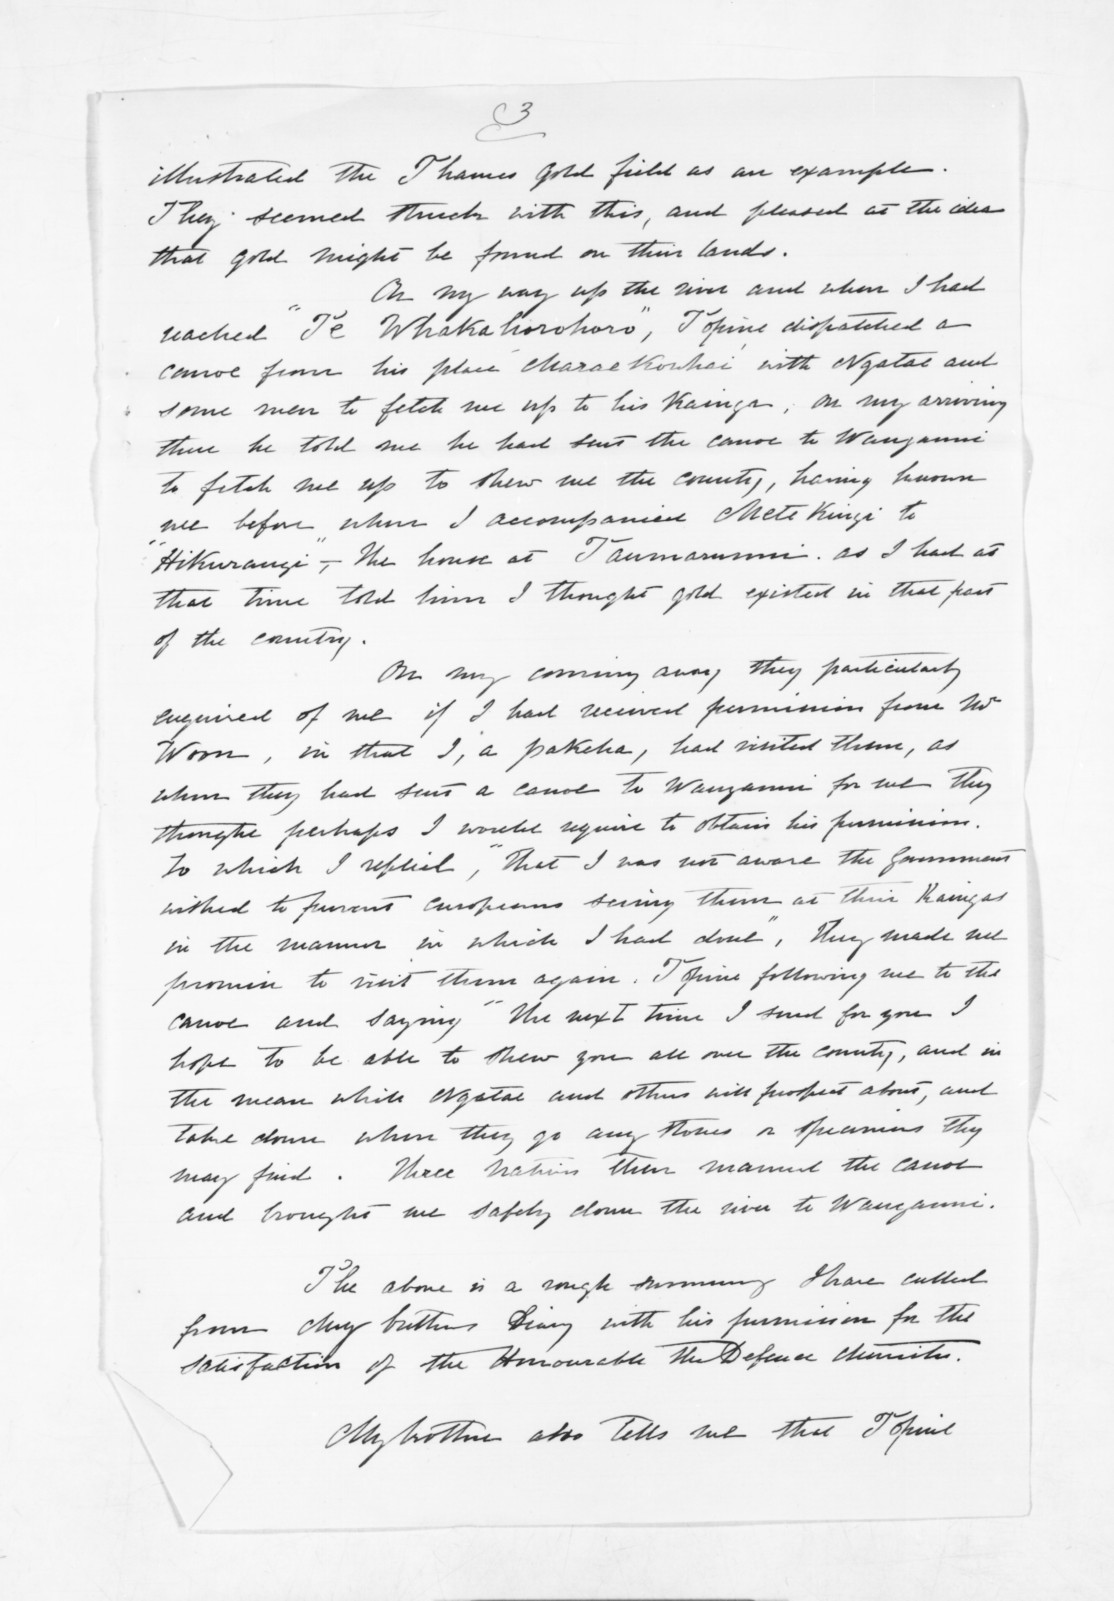 3
illustrated the Thames gold field as an example.
They seemed struck with this, and pleased at the idea
that gold might be found on their lands.
On my way up the river and when I had
reached "Te Whakahorohoro", Topine dispatched a
canoe from his place Maraekowhai, with Ngatae and
some men to fetch me up to his Kainga, on my arriving
there he told me he had sent the canoe to Wanganui
to fetch me up to shew me the country, having known
me before when I accompanied Mete Kingi to
"Hikurangi", – the house at Taumarunui. as I had at
that time told him I thought gold existed in that part
of the country.
On my coming away they particularly
enquired of me if I had received permission from Mr
Woon, in that I, a pakeha, had visited them, as
when they had sent a canoe to Wanganui for me they
thought perhaps I would require to obtain his permission.
To which I replied, "that I was not aware the Government
wished to prevent Europeans seeing them at their Kaingas
in the manner in which I had done", They made me
promise to visit them again. Topine following me to the
canoe and saying "the next time I send for you I
hope to be able to shew you all over the country, and in
the mean while Ngatae and others will prospect about, and
take down when they go any stones or specimens they
may find. Three natives then manned the canoe
and brought me safely down the river to Wanganui.
The above is a rough summary I have culled
from my brothers Diary with his permission for the
satisfaction of the Honourable the Defence Minister.
My brother also tells me that Topine